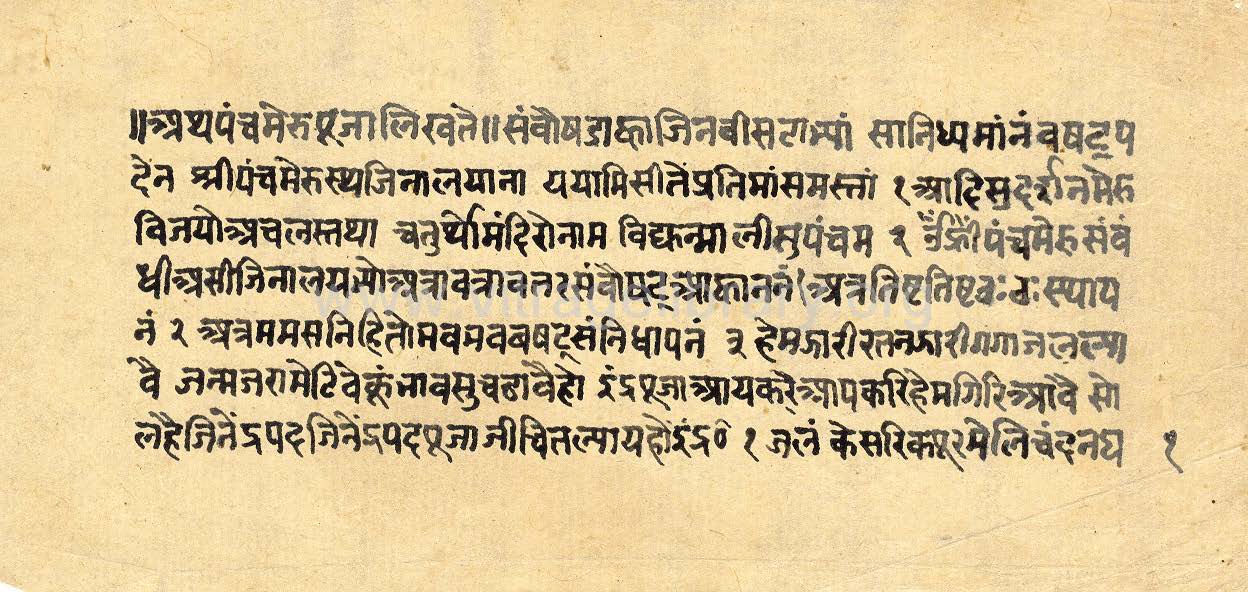 ॥अथपंचमेरुपूजालिखते॥संवौषडाह्वाजिनवीसटाभ्यां सानिध्यमांनंवषट्प
देन श्रीपंचमेरुस्थजिनालयाना ययामिसीतेंप्रतिमांसमस्तां १आदिसुदर्शनमेरु
विजयोअचलस्तथा चतुर्थोमंदिरोनाम विद्युन्मालीसुपंचम २ पंचमेरुसंबं
धीअसीजिनालयभ्योअत्रावत्रावतरसंवौषट्आह्वाननं१अत्रतिष्टतिष्टठःठःस्थाप
नं २ अत्रममसनिहितोभवभववषट्संनिधापनं ३ हेमजारीरतनजारीगगाजलल्या
वै जन्मजरामेटिवेकूंभावसुचढावैहो इंद्रपूजाआयकरैआपकरिहेमगिरिआवै सो
लहैजिनेंद्रपदजिनेंद्रपदपूजाजीचितल्यायहोइंद्र० १ जलं केसरिकपूरमेलिचंदनघ १
www.vitragelibrary.org